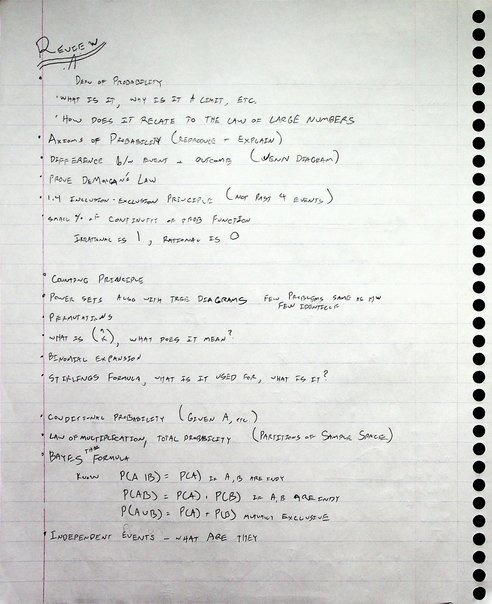 REVIEW
• DEFN OF PROBABILITY
• WHAT IS IT, WHY IS IT A LIMIT, ETC.
• HOW DOES IT RELATE TO THE LAW OF LARGE NUMBERS
• AXIOMS OF PROBABILITY (REPRODUCE + EXPLAIN)
• DIFFERENCE b/w EVENT + OUTCOME (VENN DIAGRAM)
• PROVE DEMORGAN'S LAW
• 1.4 INCLUSION-EXCLUSION PRINCIPLE (NOT PAST 4 EVENTS)
• SMALL % OF CONTINUITY OF PROB FUNCTION
IRRATIONAL IS 1, RATIONAL IS 0
• COUNTING PRINCIPLE
• POWER SETS ALSO WITH TREE DIAGRAMS FEW PROBLEMS SAME AS HW
FEW IDENTICAL
• PERMUTATIONS
• WHAT IS (n k), WHAT DOES IT MEAN?
• BINOMIAL EXPANSION
• STIRLINGS FORMULA, WHAT IS IT USED FOR, WHAT IS IT?
• CONDITIONAL PROBABILITY (GIVEN A, etc.)
• LAW OF MULTIPLICATION, TOTAL PROBABILITY (PARTITIONS OF SAMPLE SPACE)
• BAYES THM FORMULA
KNOW P(A|B) = P(A) IF A,B ARE INDY
P(AB) = P(A) • P(B) IF A,B ARE INDY
P(A∪B) = P(A) + P(B) MUTUALLY EXCLUSIVE
• INDEPENDENT EVENTS - WHAT ARE THEY